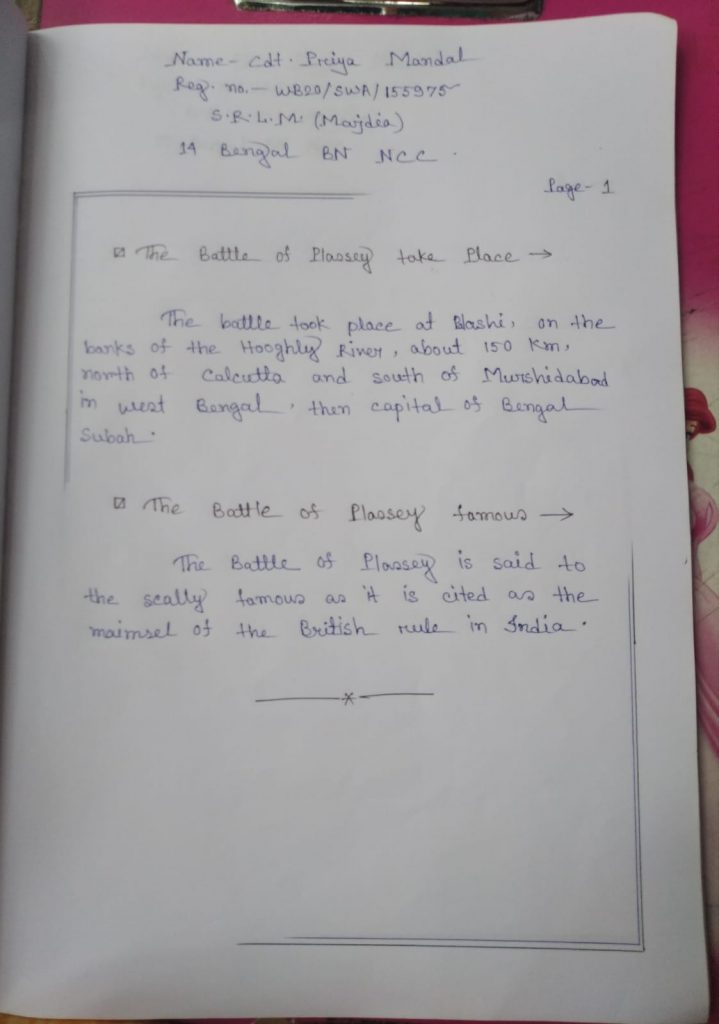 Name - Cdt. Priya Mandal
Reg. no. - WB20/SWA/155975
S.R.L.M. (Majdia)
14 Bengal BN NCC.
Page - 1
The Battle of Plassey take Place →
The battle took place at Plashi, on the
banks of the Hooghly River, about 150 Km,
north of Calcutta and south of Murshidabad
in west Bengal, then capital of Bengal
Subah.
The Battle of Plassey famous →
The Battle of Plassey is said to
the scally famous as it is cited as the
maimsel of the British rule in India.